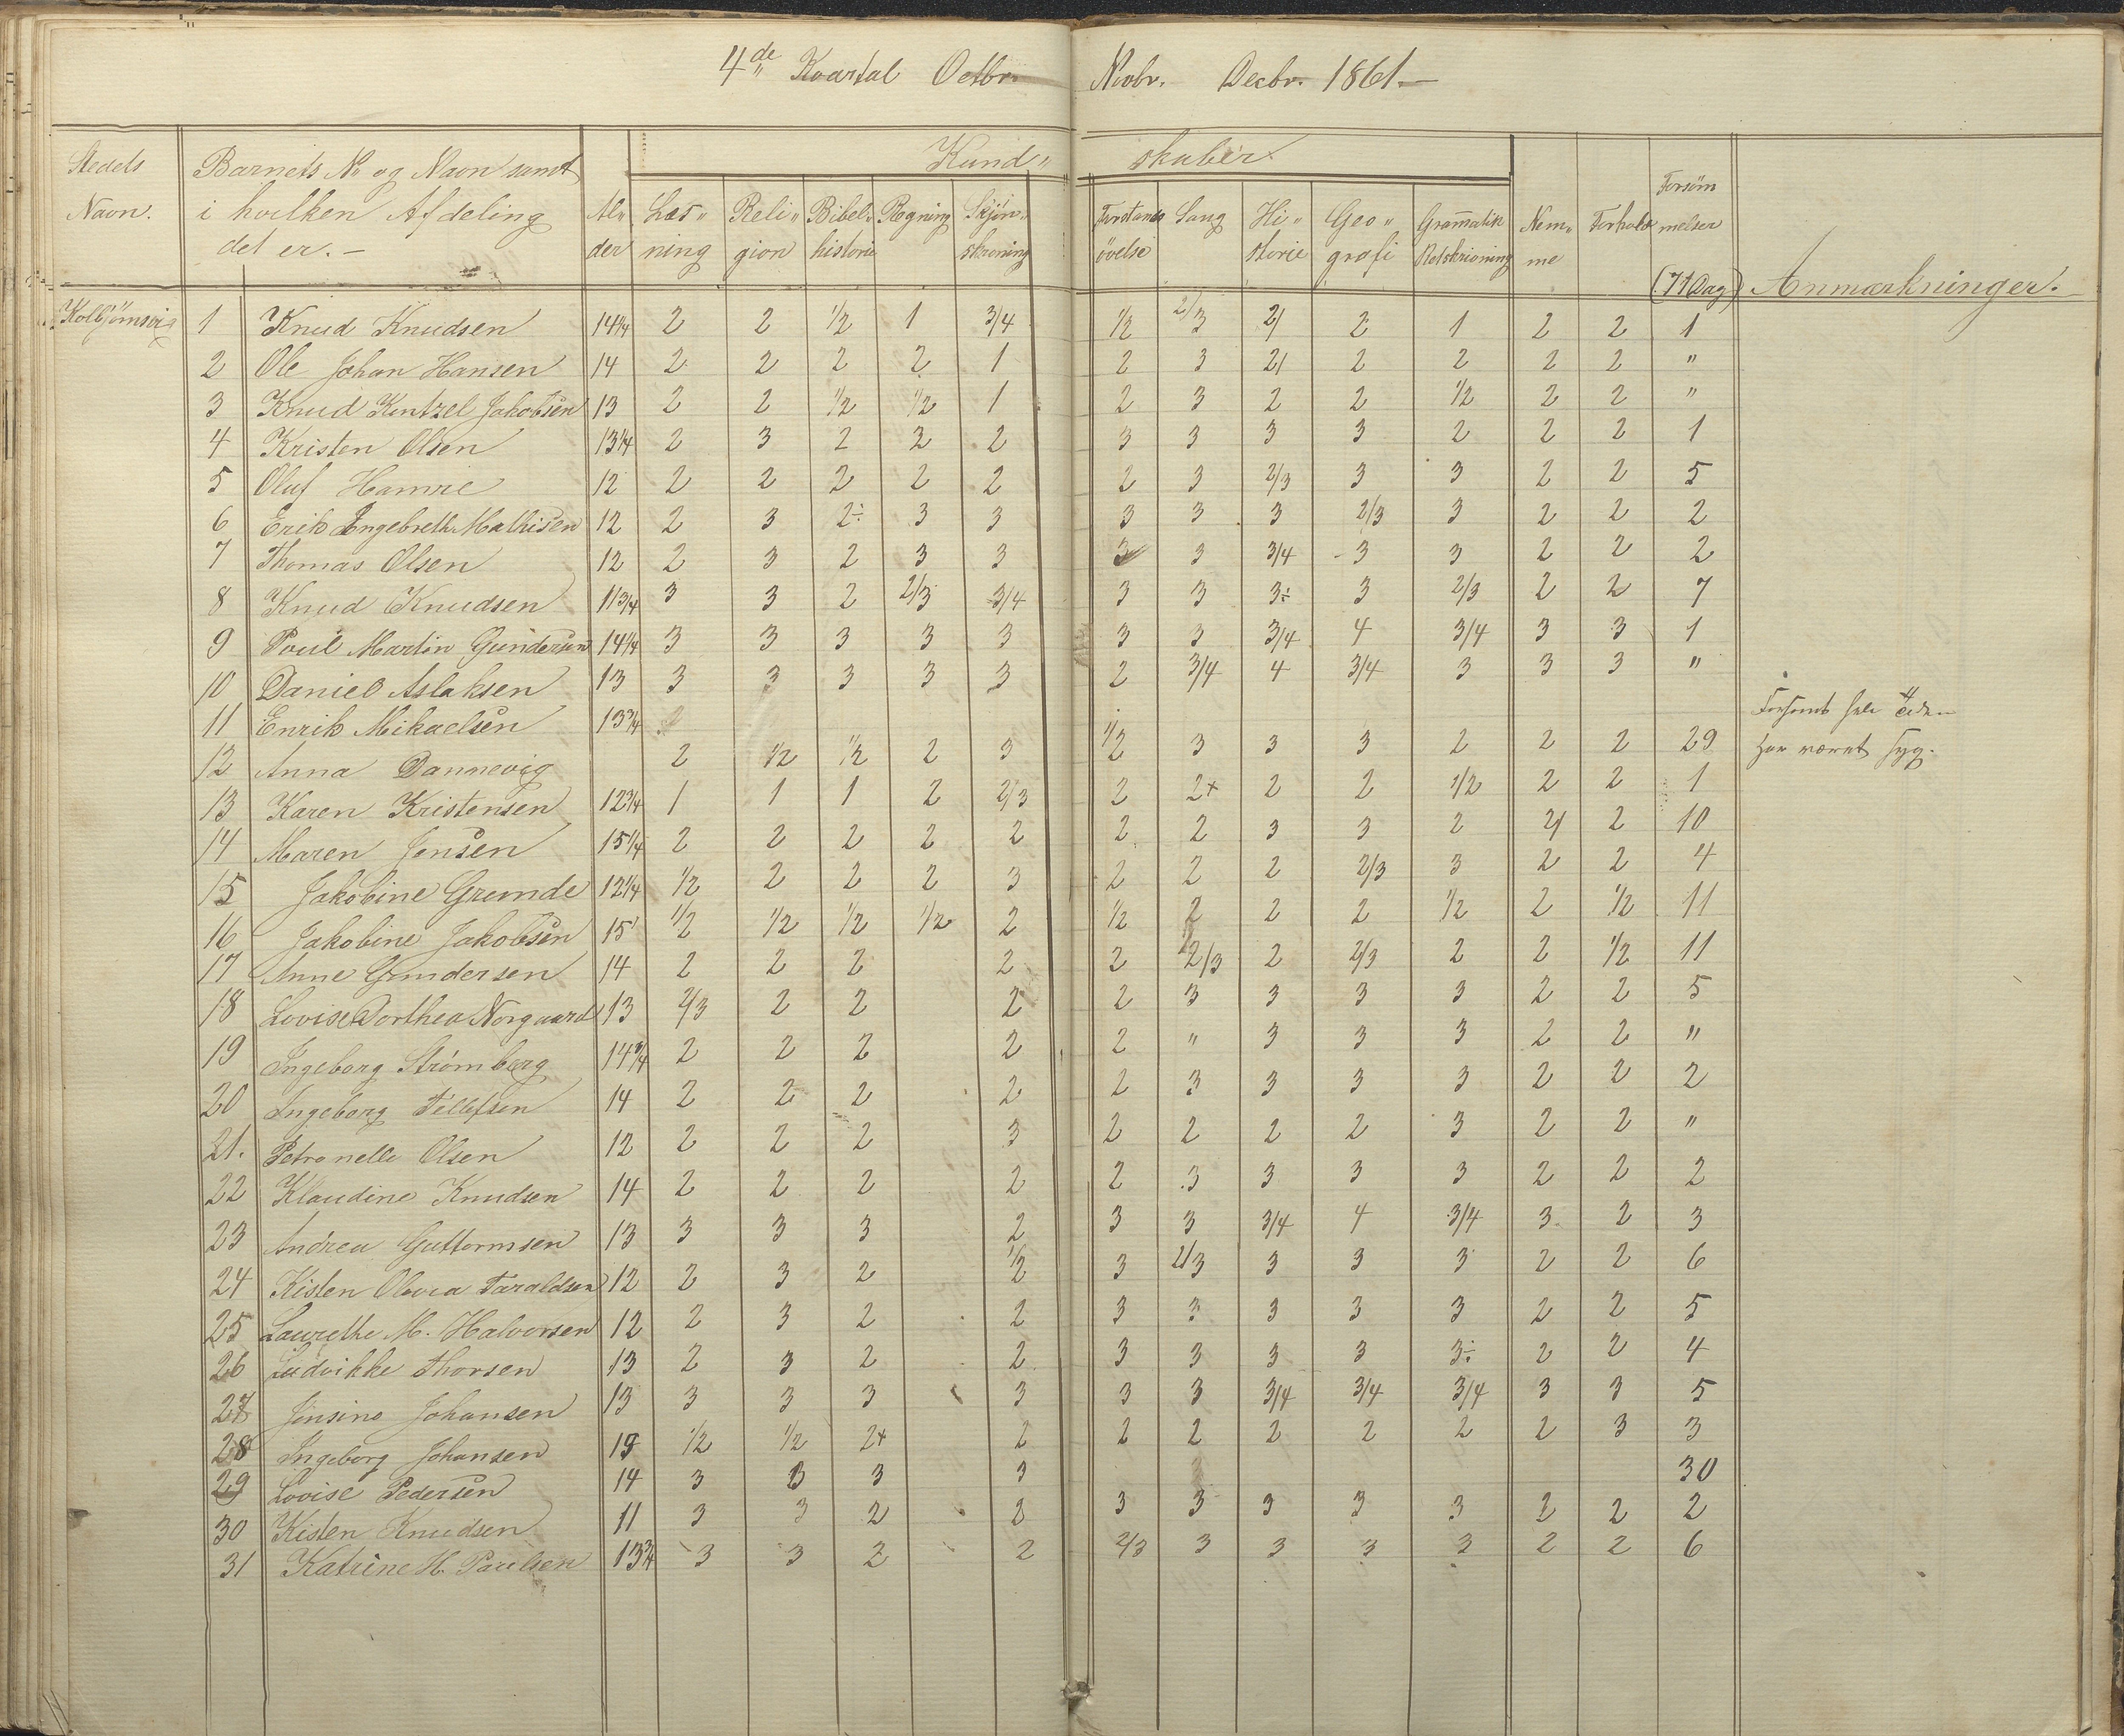 4de Kvartal Octbr. Novbr. Decbr. 1861.
Stedets Navn.
Barnets No og Navn samt i hvilken Afdeling det er.
Al„der
Kund„skaber
Læs„ning
Reli„gion
Bibel„historie
Regning
Skjön„skrivning
Forstands övelse
Sang
Hi„storie
Geo„grafi
Gramatik Retskrivning
Nem„me
Forhold
Forsömmelser (71 Dag)
Anmærkninger.
Kolbjörnsvig 1 Knud Knudsen 14 1/4 2 2 1/2 1 3/4 1/2 2/3 2/ 2 1 2 2 1
2 Ole Johan Hansen 14 2 2 2 2 1 2 3 2/ 2 2 2 2 "
3 Knud Kentzel Jakobsen 13 2 2 1/2 1/2 1 2 3 2 2 1/2 2 2 "
4 Kristen Olsen 13 1/4 2 3 2 2 2 3 3 3 3 2 2 2 1
5 Oluf Hamre 12 2 2 2 2 2 2 3 2/3 3 3 2 2 5
6 Erik Engebreth Mathisen 12 2 3 2÷ 3 3 3 3 3 2/3 3 2 2 2
7 Thomas Olsen 12 2 3 2 3 3 3 3 3/4 3 3 2 2 2
8 Knud Knudsen 11 3/4 3 3 2 2/3 3/4 3 3 3÷ 3 2/3 2 2 7
9 Poul Martin Gundersen 14 1/4 3 3 3 3 3 3 3 3/4 4 3/4 3 3 1
10 Daniel Aslaksen 13 3 3 3 3 3 2 3/4 4 3/4 3 3 3 "
11 Enrik Mikaelsen 13 3/4
12 Anna Dannevig 2 1/2 1/2 2 3 1/2 3 3 3 2 2 2 29 har været syg.
13 Karen Kristensen 12 3/4 1 1 1 2 2/3 2 2+ 2 2 1/2 2 2 1
14 Maren Jensen 15 1/4 2 2 2 2 2 2 2 3 3 2 2/ 2 10
15 Jakobine Gremde 12 1/4 1/2 2 2 2 3 2 2 2 2/3 3 2 2 4
16 Jakobine Jakobsen 15 1/2 1/2 1/2 1/2 2 1/2 2 2 2 1/2 2 1/2 11
17 Anne Gundersen 14 2 2 2 2 2 2/3 2 2/3 2 2 1/2 11
18 Lovise Dorthea Norgaard 13 2/3 2 2 2 2 3 3 3 3 2 2 5
19 Ingeborg Strömberg 14 3/4 2 2 2 2 2 " 3 3 3 2 2 "
20 Ingeborg Tellefsen 14 2 2 2 2 2 3 3 3 3 2 2 2
21. Petronelle Olsen 12 2 2 2 3 2 2 2 2 3 2 2 "
22 Klaudine Knudsen 14 2 2 2 2 2 3 3 3 3 2 2 2
23 Andrea Guttormsen 13 3 3 3 2 3 3 3/4 4 3/4 3 2 3
24 Kisten Olevia Taraldsen 12 2 3 2 1/2 3 2/3 3 3 3 2 2 6
25 Laurethe M. Halvorsen 12 2 3 2 2 3 3 3 3 3 2 2 5
26 Ludvikke Thorsen 13 2 3 2 2 3 3 3 3 3÷ 2 2 4
27 Jensine Johansen 13 3 3 3 3 3 3 3/4 3/4 3/4 3 3 5
28 Ingeborg Johansen 15 1/2 1/2 2+ 2 2 2 2 2 2 2 3 3
29 Lovise Pedersen 14 3 3 3 3 30
30 Kisten Knudsen 11 3 3 2 2 3 3 3 3 3 2 2 2
31 Katrine H. Paulsen 13 3/4 3 3 2 2 2/3 3 3 3 3 2 2 6